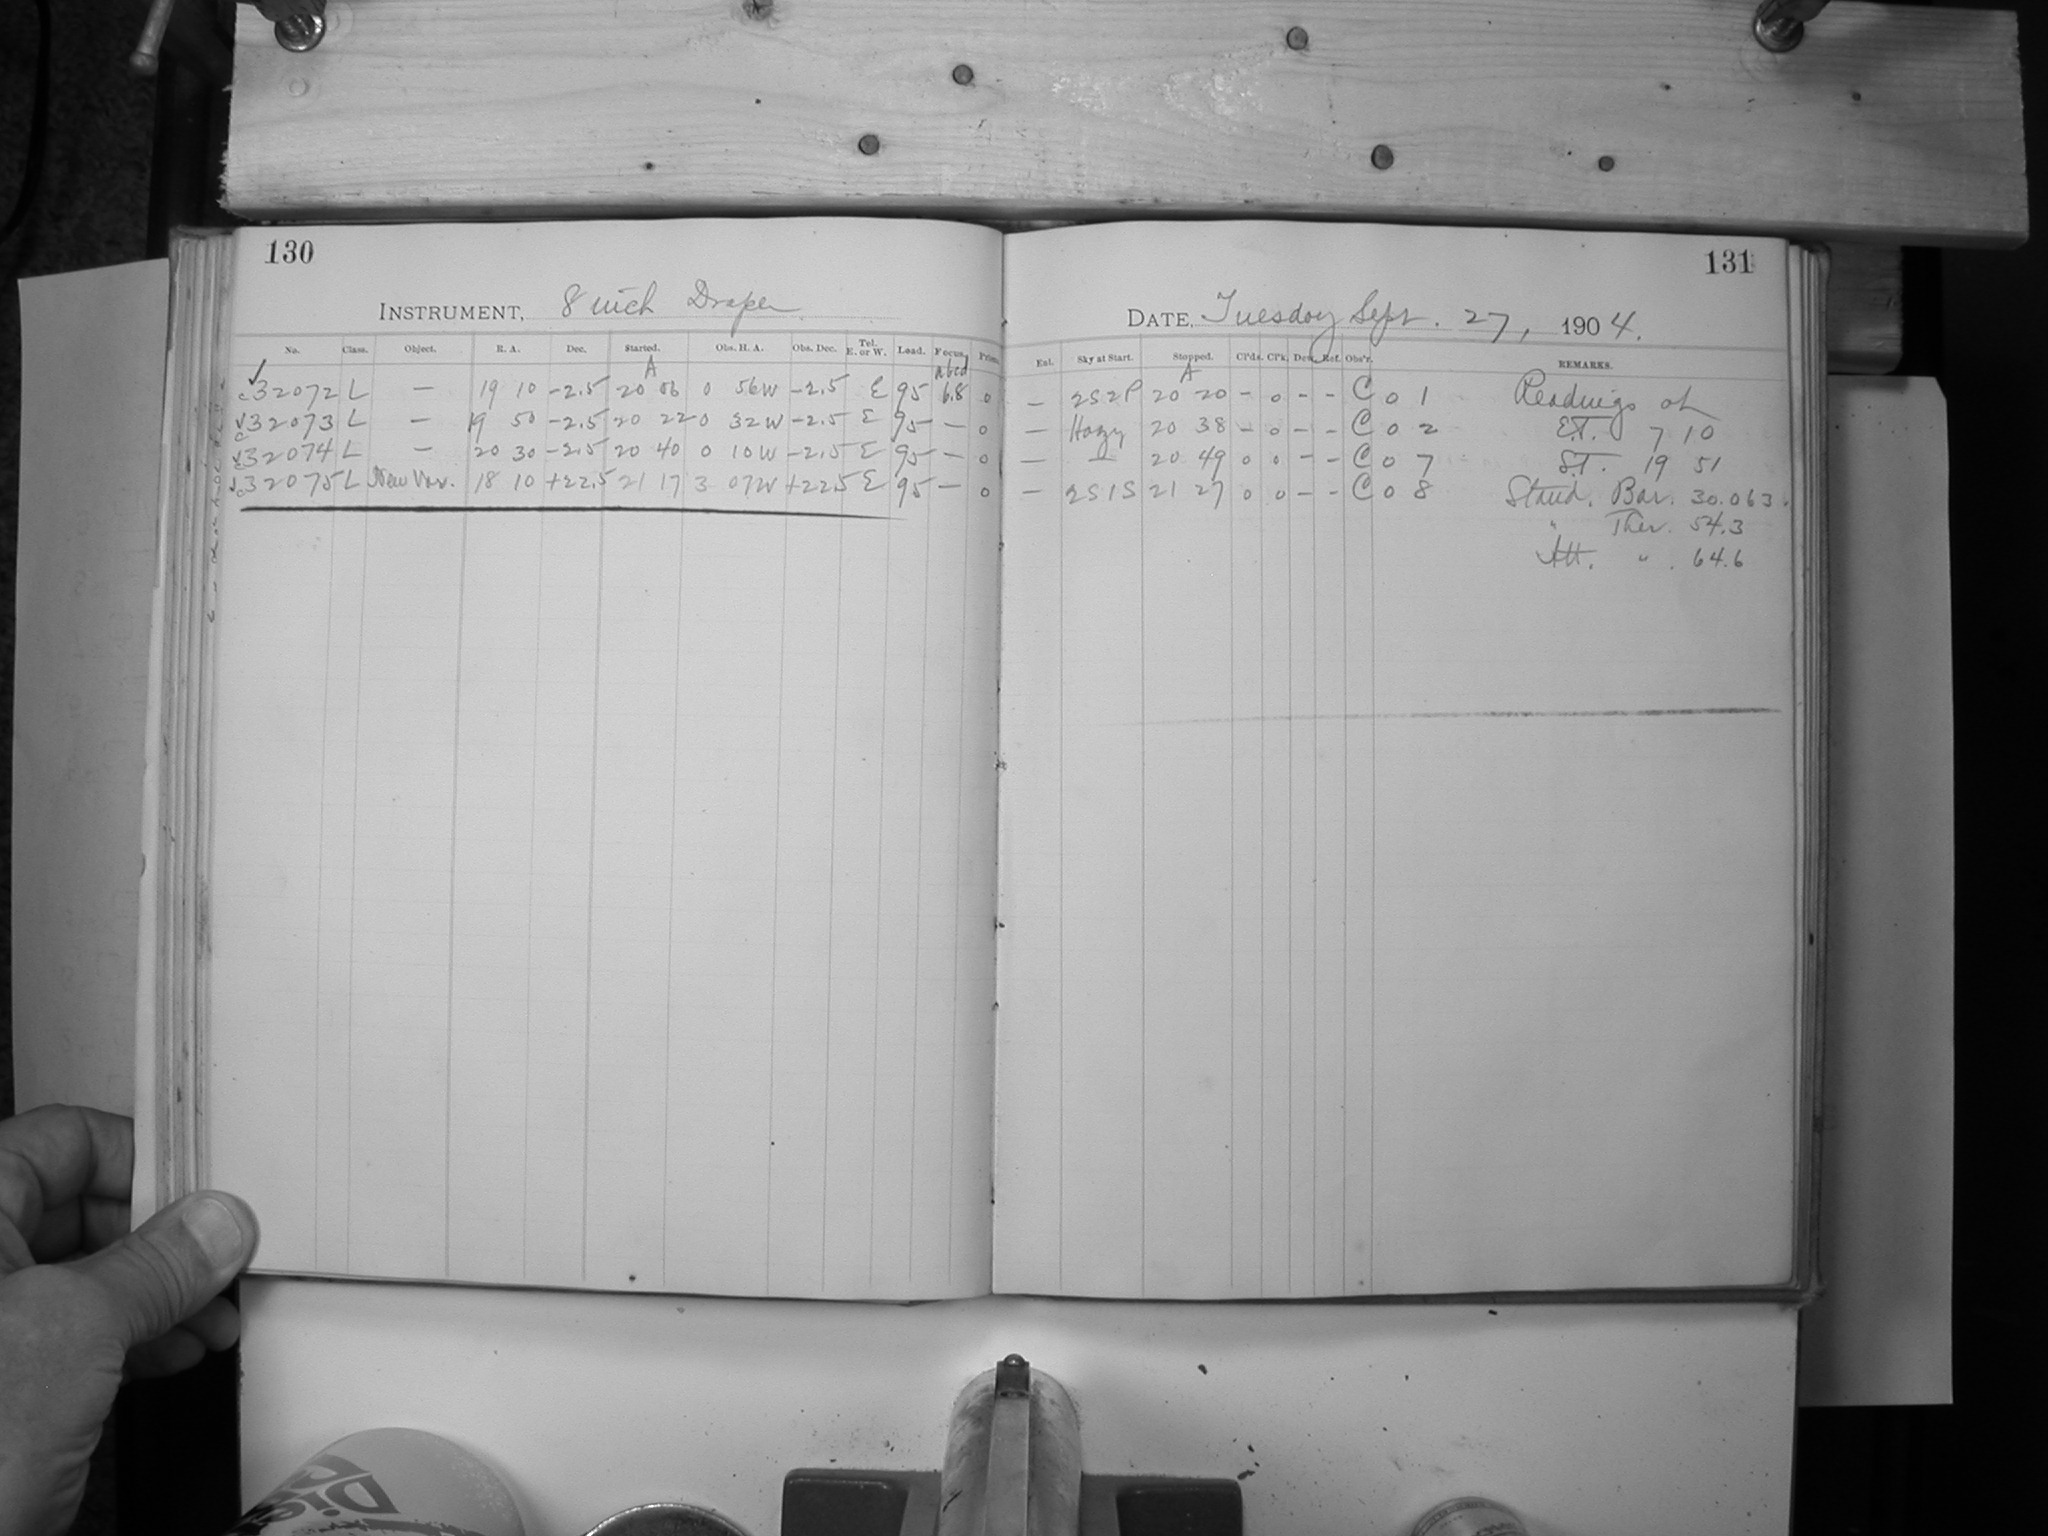 130
INSTRUMENT, 8 inch Draper
No. Class. Object. R. A. Dec. Started. Obs. H. A. Obs. Dec. Tel. E. or W. Load. Focus. Prism
A abcd
✓c 32072 L — 19 10 -2.5 20 06 0 56W -2.5 E 95 6.8 0
✓c 32073 L — 19 50 -2.5 20 22 0 32W -2.5 E 95 — 0
✓c 32074 L — 20 30 -2.5 20 40 0 10W -2.5 E 95 — 0
✓c 32075 L New Var. 18 10 +22.5 21 17 3 07W +22.5 E 95 — 0
131
DATE, Tuesday Sept. 27, 1904.
Enl. Sky at Start. Stopped. Cl'ds. Cl'k. Dew. Ref. Obs'r. REMARKS.
A
— 2S2P 20 20 - 0 - - C 0 1 Readings at
— Hazy 20 38 - 0 - - C 0 2 E.T. 7 10
— — 20 49 0 0 - - C 0 7 S.T. 19 51
— 2S1S 21 27 0 0 - - C 0 8 Stand. Bar. 30.063.
" Ther. 54.3
Att. " . 64.6